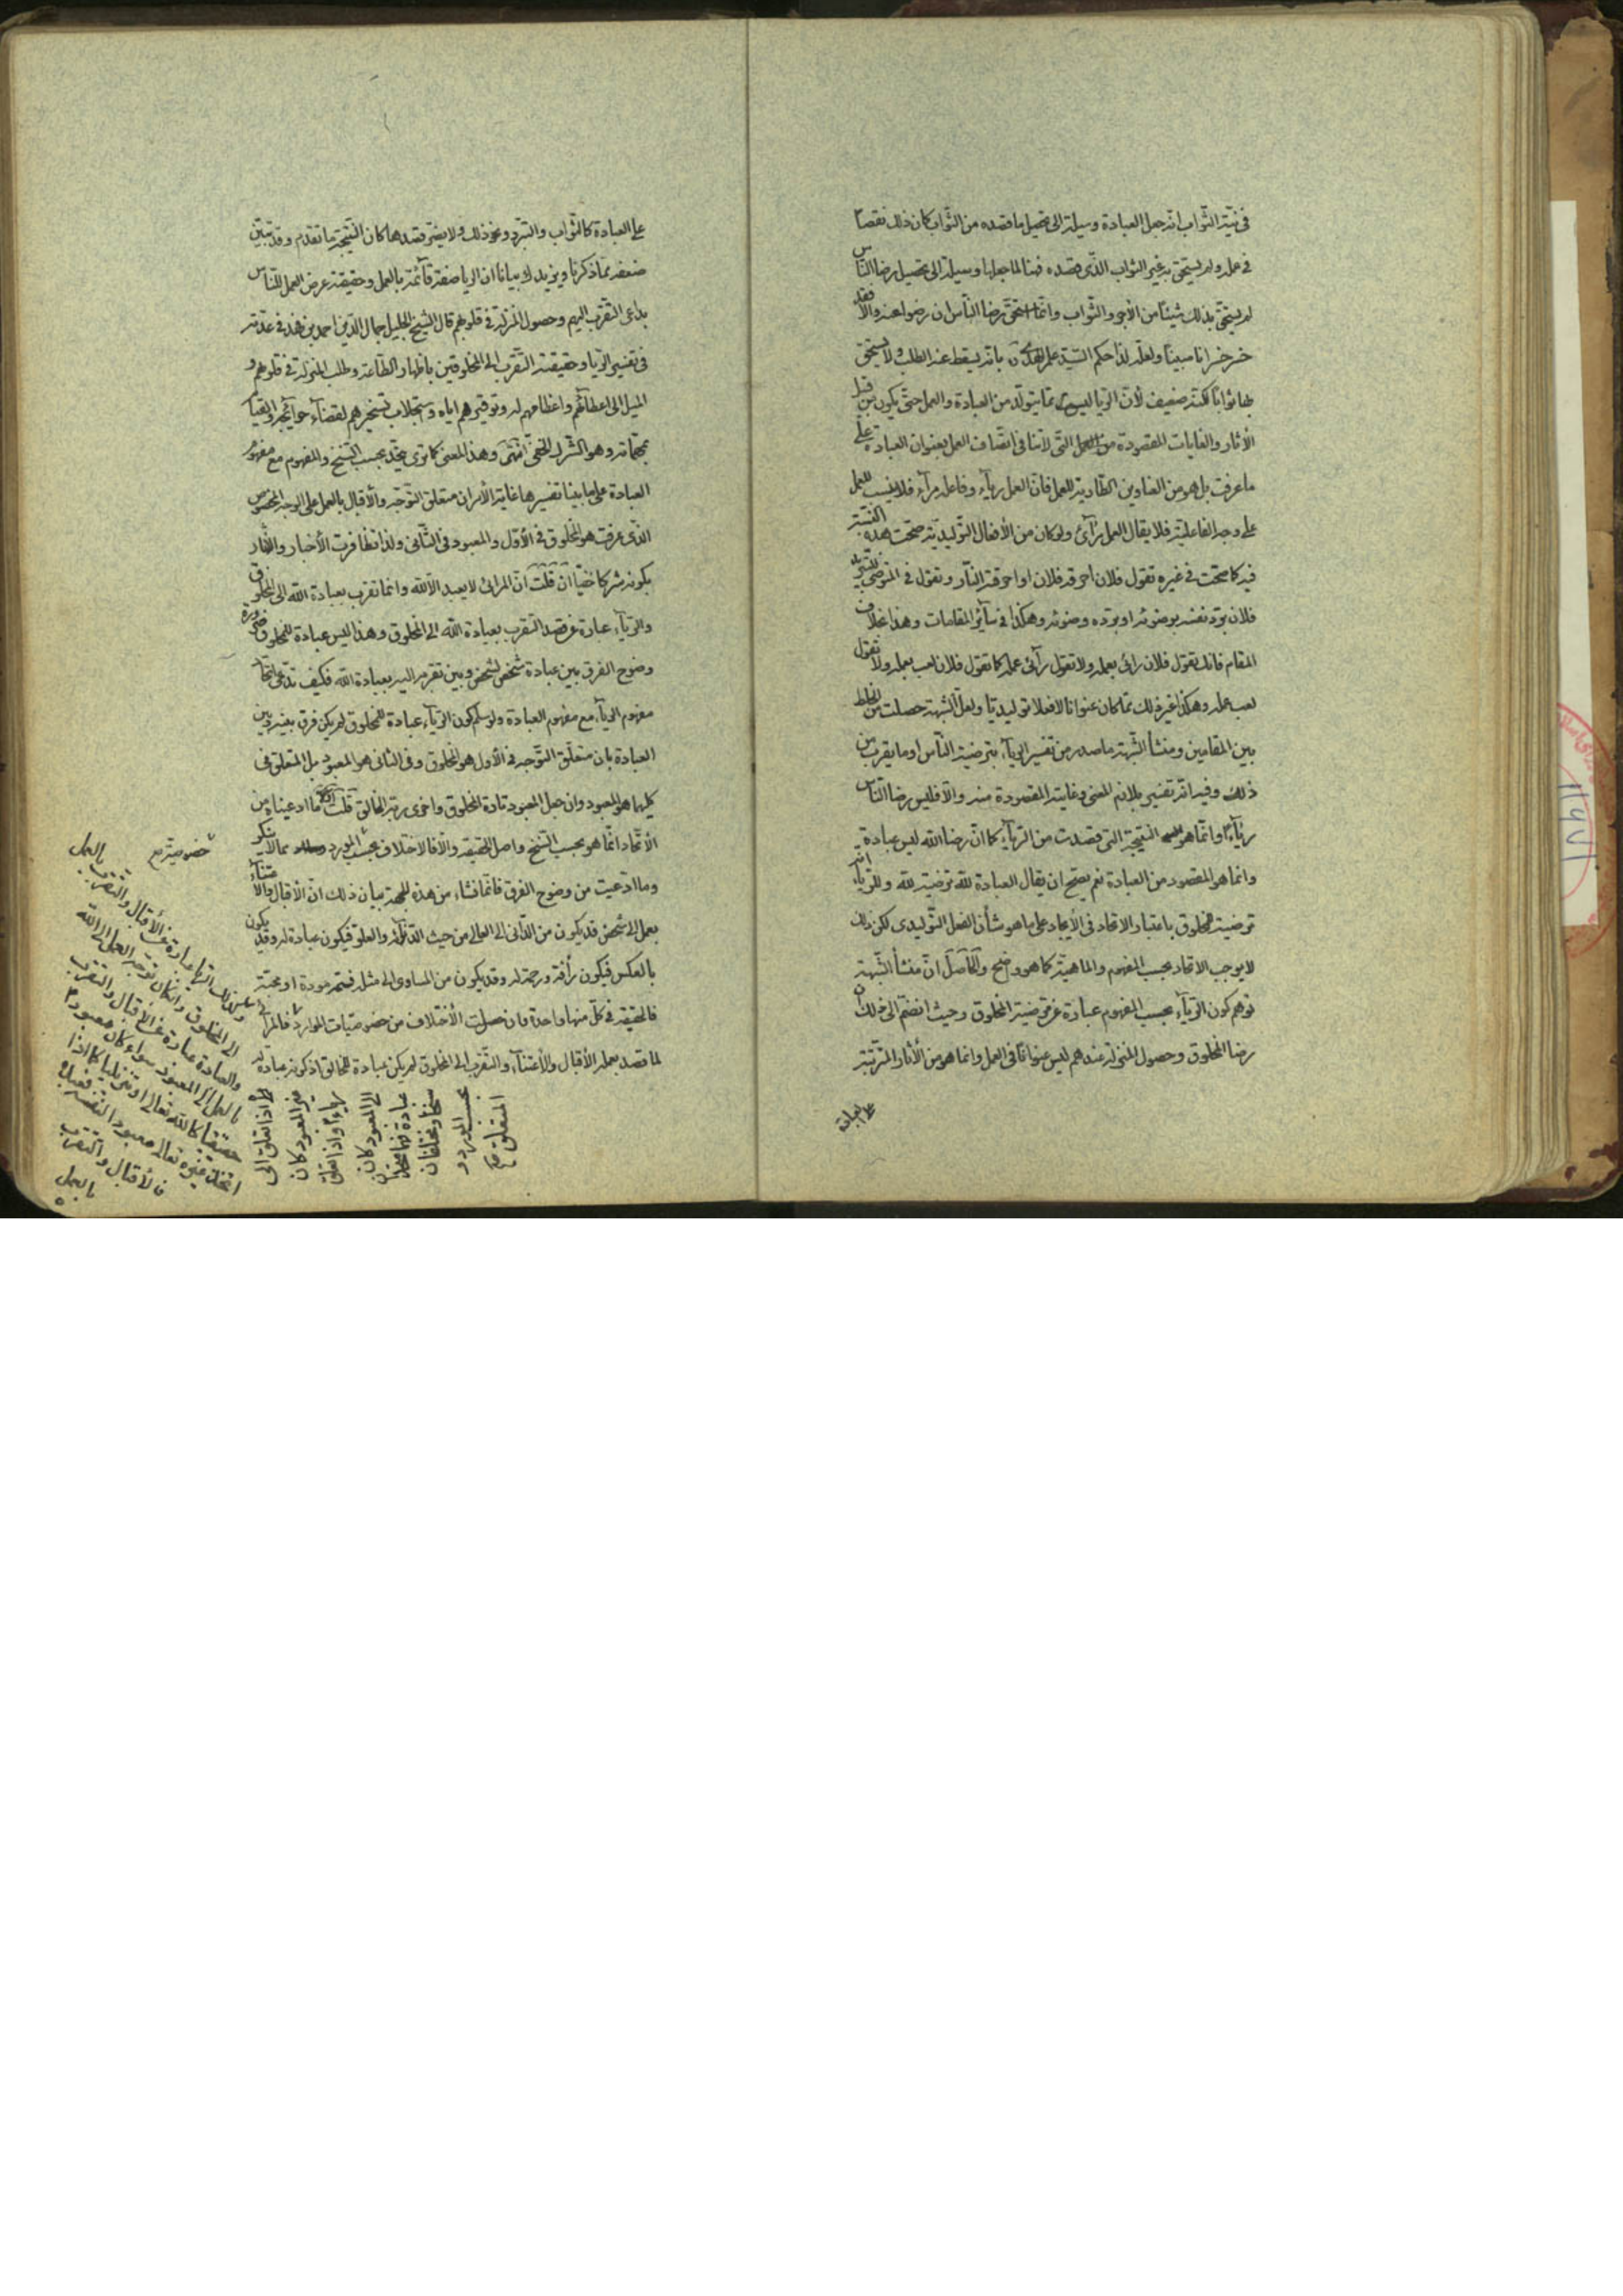 في نيّة الثواب انّه جعل العبادة وسيلة الى تحصيل ما قصده من الثّواب كان ذلك نقصا
في عمله ولم يستحق به غير الثواب الذّى قصده فهنا لما جعلها وسيلة الى تحصيل رضا الناس
لم يستحق بذلك شيئا من الأجر والثّواب وانّما استحق رضا النّاس ان رضوا عنه والاّ فقد
خسر خسرانا مبينا ولعلّه لذا حكم السّيد علم الهدى بانّه يسقط عنه الطلب ولا يستحق
بها ثوابا لكنّه ضعيف لأنّ الريا ليس مما يتولّد من العبادة والعمل حتّى يكون من قبيل
الأثار والغايات المقصودة من العمل التّى لا تنافى اتّصاف العمل بعنوان العبادة على
ما عرفت بل هو من العناوين الطّارية للعمل فانّ العمل رياء وفاعله مراء فلا ينسب للعمل
على وجه الفاعليّة فلا يقال العمل رآئ ولو كان من الأفعال التّوليديّة صحّت هذه النّسبة
فيه كما صحّت في غيره تقول فلان احرقه فلان او احرقته النّار وتقول في المتوضّى
فلان برّد نفسه بوضوئه او برّده وضوئه وهكذا في سآئر المقامات وهذا بخلاف
المقام فانك تقول فلان رائى بعمله ولا تقول رآئى عمله كما تقول فلان لعب بعمله ولا تقول
لعب عمله وهكذا غير ذلك ممّا كان عنوانا لا فعلا توليديّا ولعلّ الشّبهة حصلت من الخلط
بين المقامين ومنشأ الشّبهة ما صدر من تفسير الرّياء بترضية النّاس او ما يقرب من
ذلك وفيه انّه تفسير بلازم المعنى وغايته المقصودة منه والاّ فليس رضا النّاس
رياء وانّما هو النتيجة التى قصدت من الرّياء كما انّ رضا الله ليس عبادة
وانما هو المقصود من العبادة نعم يصحّ ان يقال العبادة لله ترضية لله وللرّياء انه
ترضية للمخلوق باعتبار الاتحاد فى الأيجاد على ما هو شأن الفعل التّوليدى لكن ذلك
لا يوجب الاتحاد بحسب المفهوم والماهيّة كما هو واضح والحاصل انّ منشأ الشّبهة
توهم كون الرّياء بحسب المفهوم عبارة عن ترضية المخلوق وحيث انضمّ الى ذلك ان
رضا المخلوق وحصول المنزلة عندهم ليس عنوانا فى العمل وانما هو من الأثار المترتّبة
على العبادة
على العبادة كالثّواب والتبرّد ونحو ذلك ولا يضرّ قصدها كان النتيجة ما تقدم وقد تبيّن
ضعفه ممّا ذكرنا ويزيدك بيانا ان الريا صفة قآئمة بالعمل وحقيقته عرض العمل للنّاس
بداعى التقرب اليهم وحصول المنزلة فى قلوبهم قال الشّيخ الجليل جمال الدّين احمد بن فهد فى عدّته
فى تفسير الرّيا وحقيقته التّقرب الى المخلوقين باظهار الطّاعة وطلب المنزلة فى قلوبهم و
الميل الى اعظامهم له وتوقيرهم اياه واستجلاب تسخيرهم لقضاء حوآئجه والقيام
بمهمّاته وهو الشّرك الخفى انتهى وهذا المعنى كما ترى يتّحد بحسب السّنخ والمفهوم مع مفهوم
العبادة على ما بينا تفسيرها غاية الأمر ان متعلق التّوجّه والأقبال بالعمل على الوجه المخصوص
الذّى عرفت هو المخلوق فى الأوّل والمعبود فى الثّانى ولذا تظافرت الأخبار والآثار
بكونه شركا خفيّا ان قلت انّ المرائى لا يعبد الاّ الله وانما تقرب بعبادة الله الى المخلوق
والرّياء عبارة عن قصد التقرب بعبادة الله الى المخلوق وهذا ليس عبادة للمخلوق ضرورة
وضوح الفرق بين عبادة شخص لشخص وبين تقرّبه اليه بعبادة الله فكيف تدّعى اتّحاد
مفهوم الرياء مع مفهوم العبادة ولو سلم كون الرّياء عبادة للمخلوق لم يكن فرق بينه وبين
العبادة بان متعلّق التّوجه فى الأول هو المخلوق وفى الثانى هو المعبود بل المتعلق فى
كليهما هو المعبود وان جعل المعبود تارة المخلوق واخرى ربّه الخالق قلت ما ادعيناه من
الأتّحاد انّما هو بحسب السّنخ واصل الحقيقة والاّ فالاختلاف بحسب المورد مما لا ينكر
وما ادّعيت من وضوح الفرق فانّما نشاء من هذه الجهة بيان ذلك انّ الأقبال والأعتناء
بعمل الى شخص قد يكون من الدّانى الى العالى من حيث التذلّل والعلو فيكون عبادة له وقد يكون
بالعكس فيكون رأفة ورحمة له وقد يكون من المساوى الى مثله فيسمّى مودة او محبّة
فالحقيقة فى كلّ منها واحدة وان حصلت الأختلاف من خصوصيّات الموارد فالمرائى
لما قصد بعمله الأقبال والأعتناء والتّقرب الى المخلوق لم يكن عبادة للخالق اذ كونه عبادة له
خصوصيته
وكذلك الريا عبارة عن الأقبال والتقرب بالعمل
الى المخلوق وان كان بتوجه العمل الى الله
والعبادة عبارة عن الاقبال والتقرب
بالعمل الى المعبود سواء كان معبودا
حقيقيا كالله تعالى او تنزيليا كما اذا
اتخذ غيره تعالى معبودا لنفسه
فالأقبال والتقرب
بالعمل
اذا تعلق الى
غير المعبود كان
رياء واذا تعلق
الى المعبود كان
عبادة فهما متحدان
سنخا ومختلفان
بحسب المورد و
المتعلق